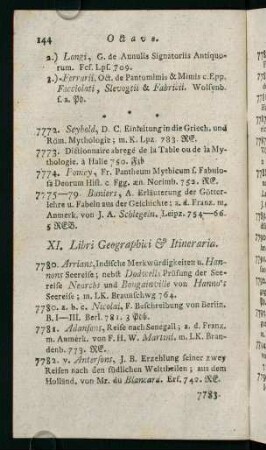 144 Octavo.
2.) Longi, G. de Annulis Signatoriis Antiquo-
rum. Fcf. Lpf. 709.
3.) Ferrarii. Oct. de Pantomimis & Mimis c. Epp.
Facciolati, Slevogtii & Fabricii. Wolfenb.
f. a. Pb.
* * *
7772. Seybold, D. C. Einleitung in die Griech. und
Röm. Mythologie; m. K. Lpz. 783. RE.
7773. Dictionnaire abregé de la Table ou de la My-
thologie. à Halle 750. Frb
7774. Pomey, Fr. Pantheum Mythicum f. Fabulo-
fa Deorum Hift. c Fgg. æn. Norimb. 752. RE.
7775—79. Baniers, A. Erläuterung der Götter-
lehre u. Fabeln aus der Geschichte; a. d. Franz. m.
Anmerk. von J. A. Schlegeln, Leipz. 754—66.
5 REB.
XI. Libri Geographici & Itineraria.
7780. Arrians, Indische Merkwürdigkeiten u. Han-
nons Seereise; nebst Dodwells Prüfung der See-
reise Nearchs und Bougainville von Hanno's
Seereise; m. LK. Braunschwg 764.
7780. a. b. c. Nicolai, F. Beschreibung von Berlin.
B. I—III. Berl. 781. 3 Pbb.
7781. Adansons, Reise nach Senegall; a. d. Franz.
m. Anmerk. von F. H. W. Martini, m. LK. Bran-
denb. 773. RE.
7782. v. Antersons, J. B. Erzehlung seiner zwey
Reisen nach den südlichen Welttheilen; aus dem
Holländ. von Mr. du Blancard. Erf. 742. RE.
7783.